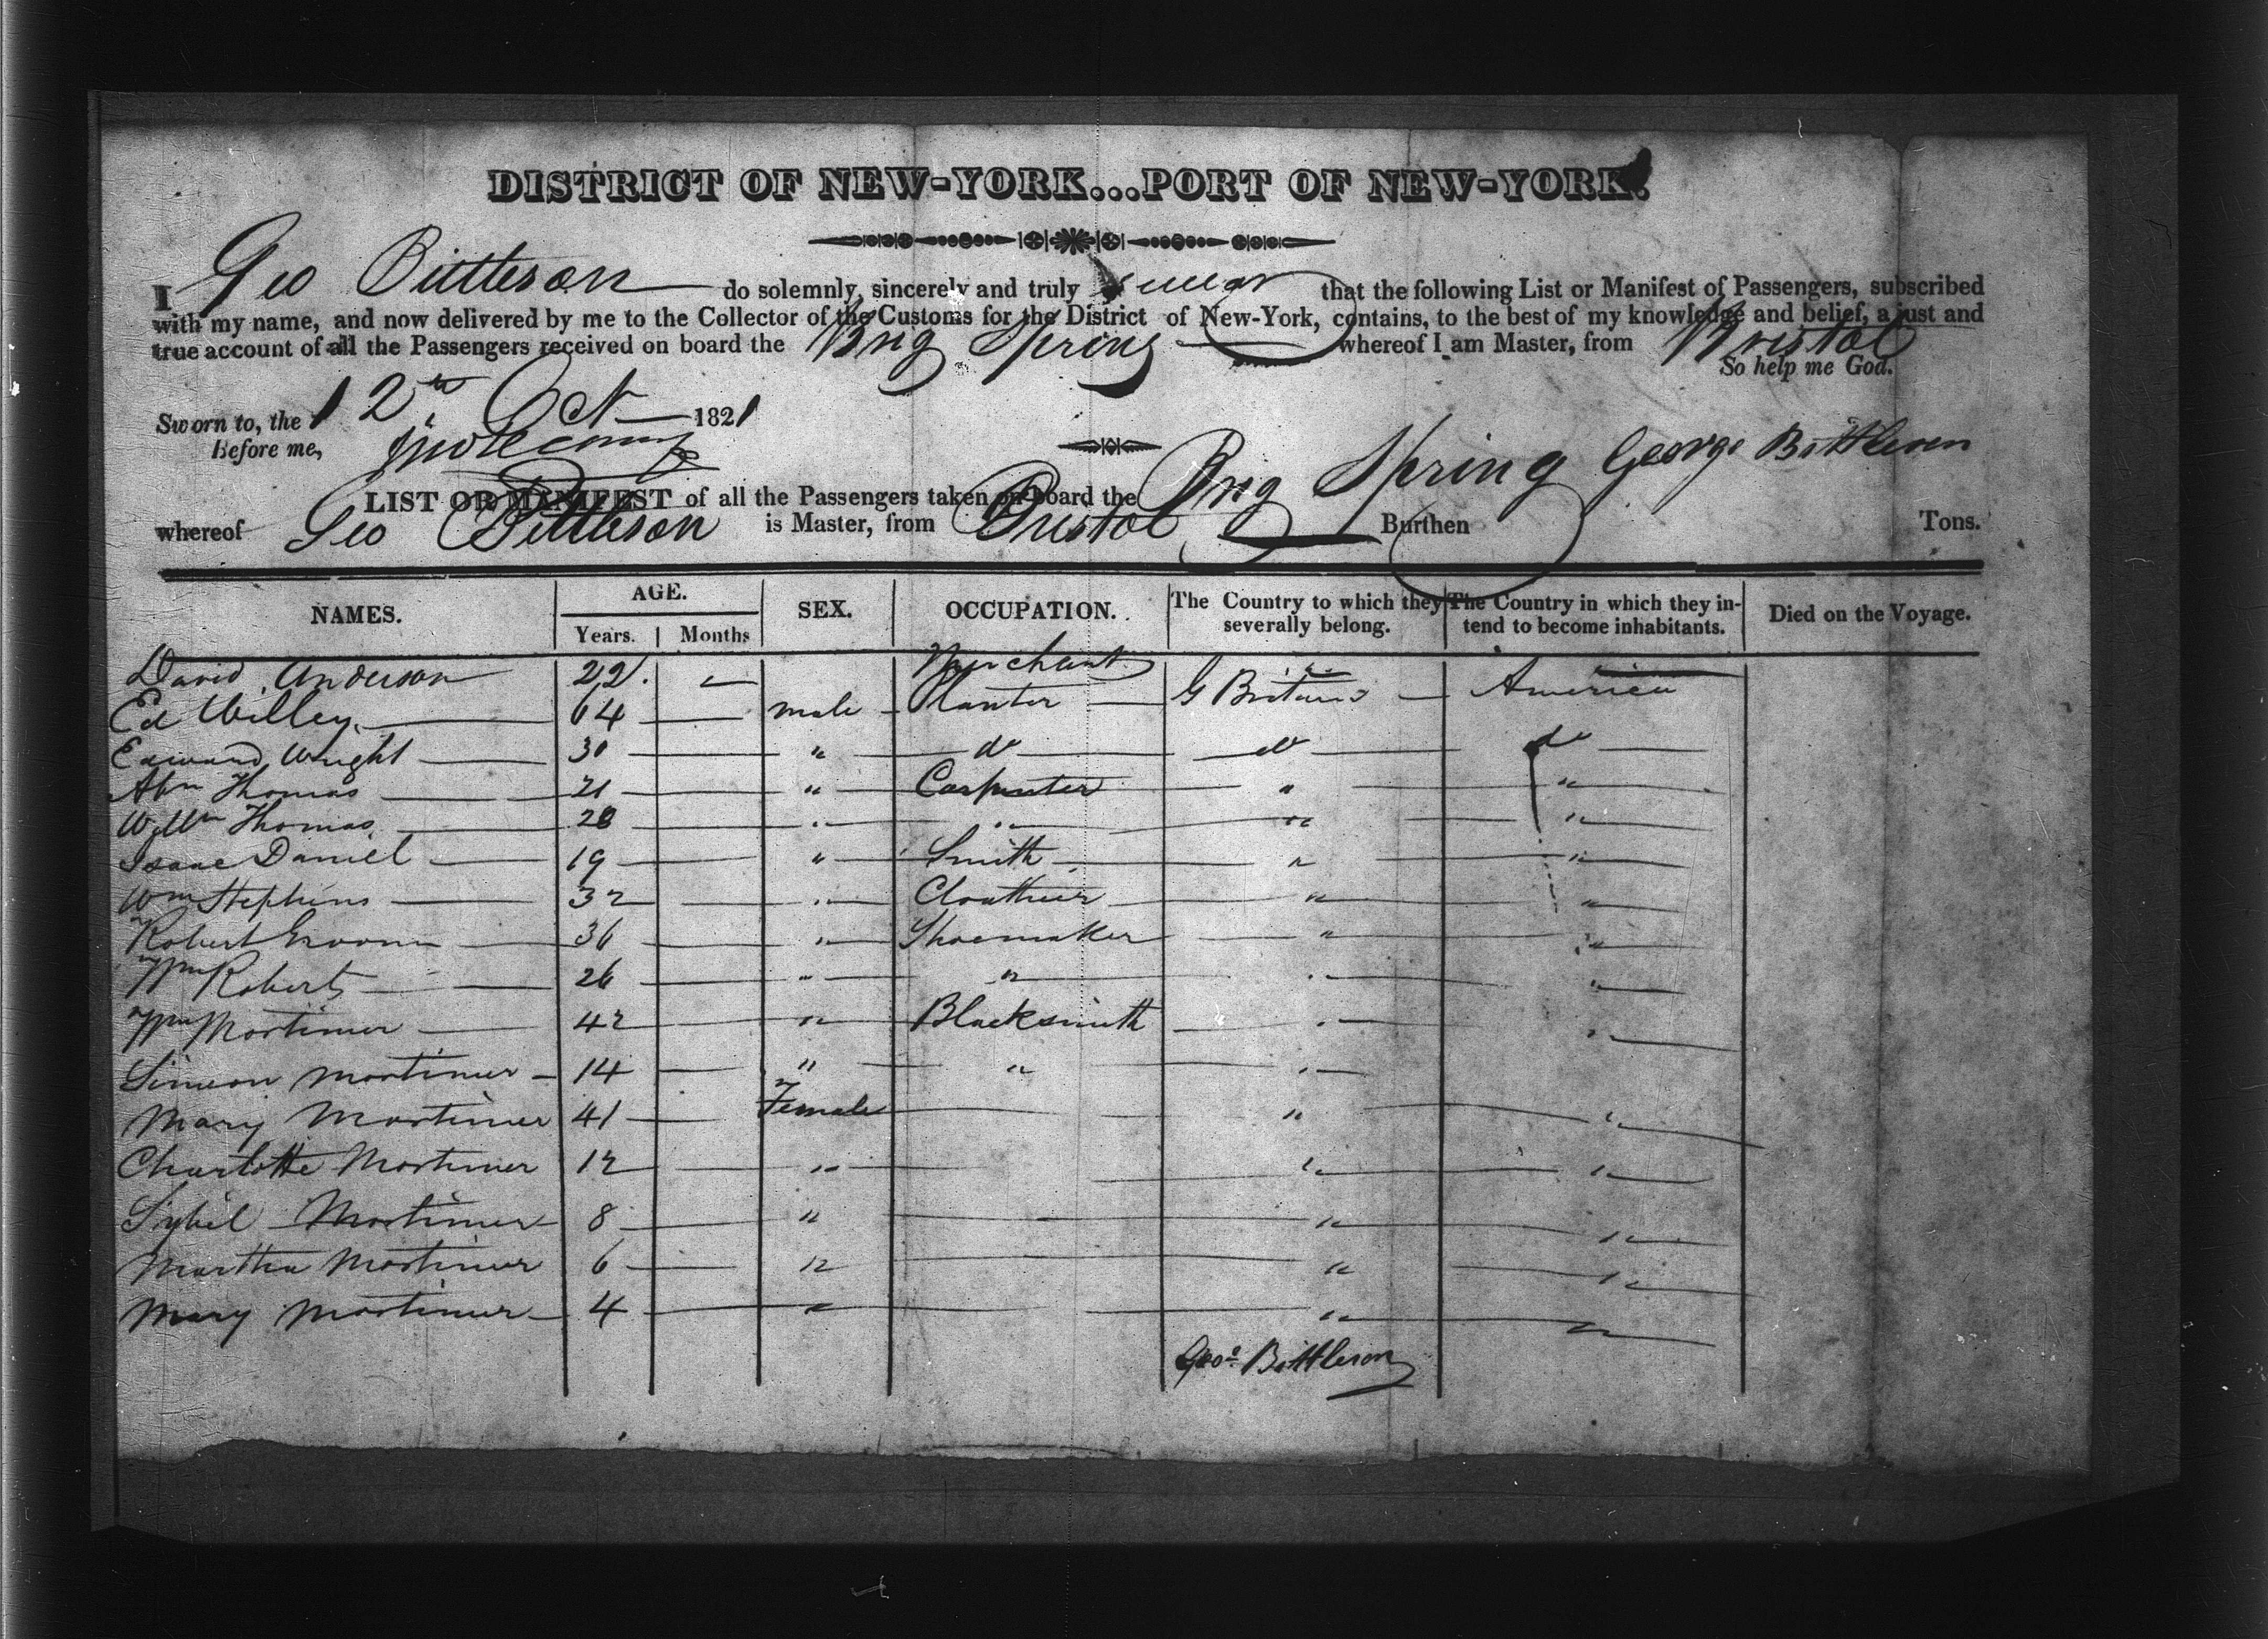 DISTRICT OF NEW-YORK...PORT OF NEW-YORK.
I Geo Bittleson do solemnly, sincerely and truly swear that the following List or Manifest of Passengers, subscribed
with my name, and now delivered by me to the Collector of the Customs for the District of New-York, contains, to the best of my knowledge and belief, a just and
true account of all the Passengers received on board the Brig Spring whereof I am Master, from Bristol
So help me God.
Sworn to, the 12th Oct 1821
Before me,
George Bittleson
LIST OR MANIFEST of all the Passengers taken on board the Brig Spring
whereof Geo Bittleson is Master, from Bristol Burthen Tons.
NAMES. AGE. SEX. OCCUPATION. The Country to which they severally belong. The Country in which they intend to become inhabitants. Died on the Voyage.
Years. Months
David Anderson 22. Merchant
Ed Willey 64 male Planter G Britain America
Edward Wright 30 " do do do
Abm Thomas 21 " Carpenter " "
Wm Thomas 28 " " " "
Isaac Daniel 19 " Smith " "
Wm Stephens 32 " Clouthier " "
Robert Groom 36 " Shoemaker " "
Wm Roberts 26 " " " "
Wm Mortimer 42 " Blacksmith " "
Simeon Mortimer 14 " " "
Mary Mortimer 41 Female " "
Charlotte Mortimer 12 " " "
Sybil Mortimer 8 " " "
Martha Mortimer 6 " " "
Mary Mortimer 4 " " "
Geo: Bittleson